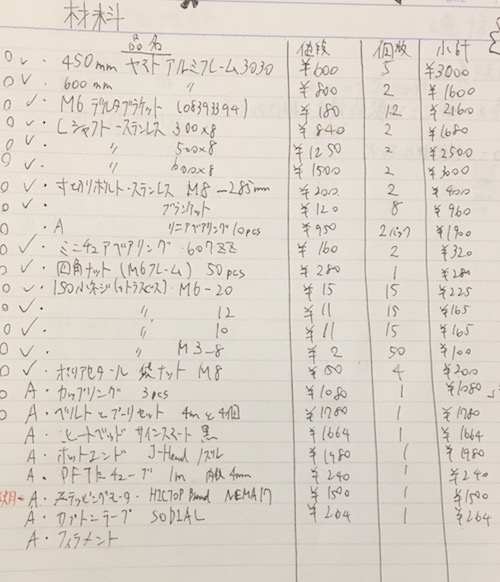 材料
品名 値段 個数 小計
○ ✓ ・ 450mm ヤマト アルミフレーム3030 ¥600 5 ¥3000
○ ✓ ・ 600mm 〃 ¥800 2 ¥1600
○ ✓ ・ M6 デルタブラケット (08393394) ¥180 12 ¥2160
○ ✓ ・ Lシャフト-ステンレス 300×8 ¥840 2 ¥1680
○ 〃 500×8 ¥1250 2 ¥2500
○ 〃 600×8 ¥1500 2 ¥3000
○ ✓ ・ ステンレス M8-285mm ¥200 2 ¥400
○ ✓ ・ ¥120 8 ¥960
○ ・ A リニアベアリング10pcs ¥950 2パック ¥1900
○ ✓ ・ ミニチュアベアリング 607ZZ ¥160 2 ¥320
○ ✓ ・ 四角ナット (M6フレーム) 50pcs ¥280 1 ¥280
○ ✓ ・ ISO M6-20 ¥15 15 ¥225
○ ✓ ・ 〃 12 ¥11 15 ¥165
○ ✓ ・ 〃 10 ¥11 15 ¥165
○ ✓ ・ 〃 M3-8 ¥2 50 ¥100
○ ✓ ・ ポリアセタール ナット M8 ¥50 4 ¥200
○ A ・ カップリング 3pcs ¥1080 1 ¥1080
○ A ・ ベルトとプーリセット 4mと4個 ¥1780 1 ¥1780
A ・ ヒートベッド サインスマート 黒 ¥1664 1 ¥1664
A ・ ホットエンド J-Head ノズル ¥1980 1 ¥1980
A ・ PFTEチューブ 1m 4mm ¥240 1 ¥240
A ・ ステッピングモータ・HICTOP Brand NEMA17 ¥1500 1 ¥1500
A ・ カプトンテープ SODIAL ¥264 1 ¥264
A ・ フィラメント